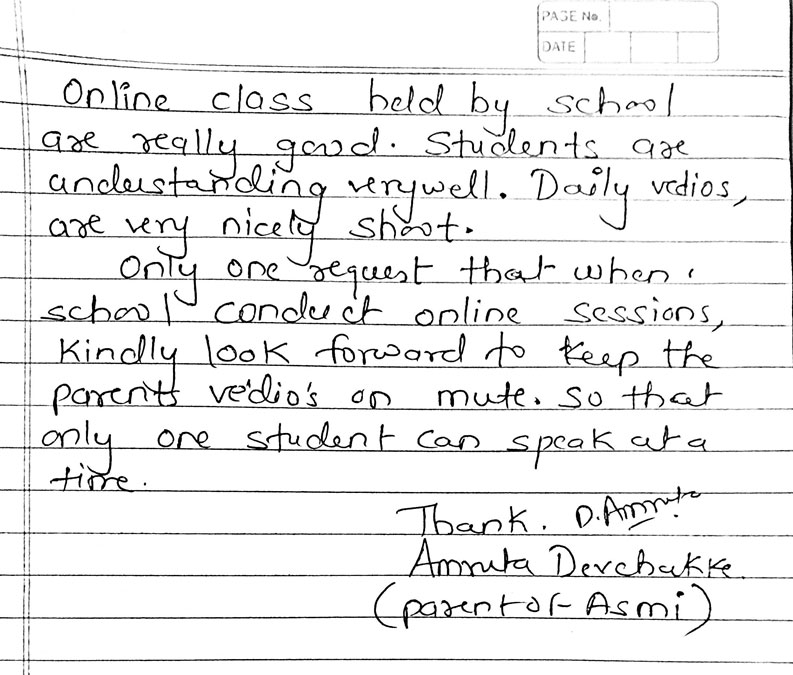 PAGE No.
DATE
Online class held by school
are really good. Students are
understanding verywell. Daily vedios,
are very nicely shoot.
Only one request that when
school conduct online sessions,
Kindly look forward to keep the
parents vedio's on mute. So that
only one student can speak at a
time.
Thank. D. Amruta
Amruta Devchakke.
(parent of Asmi)